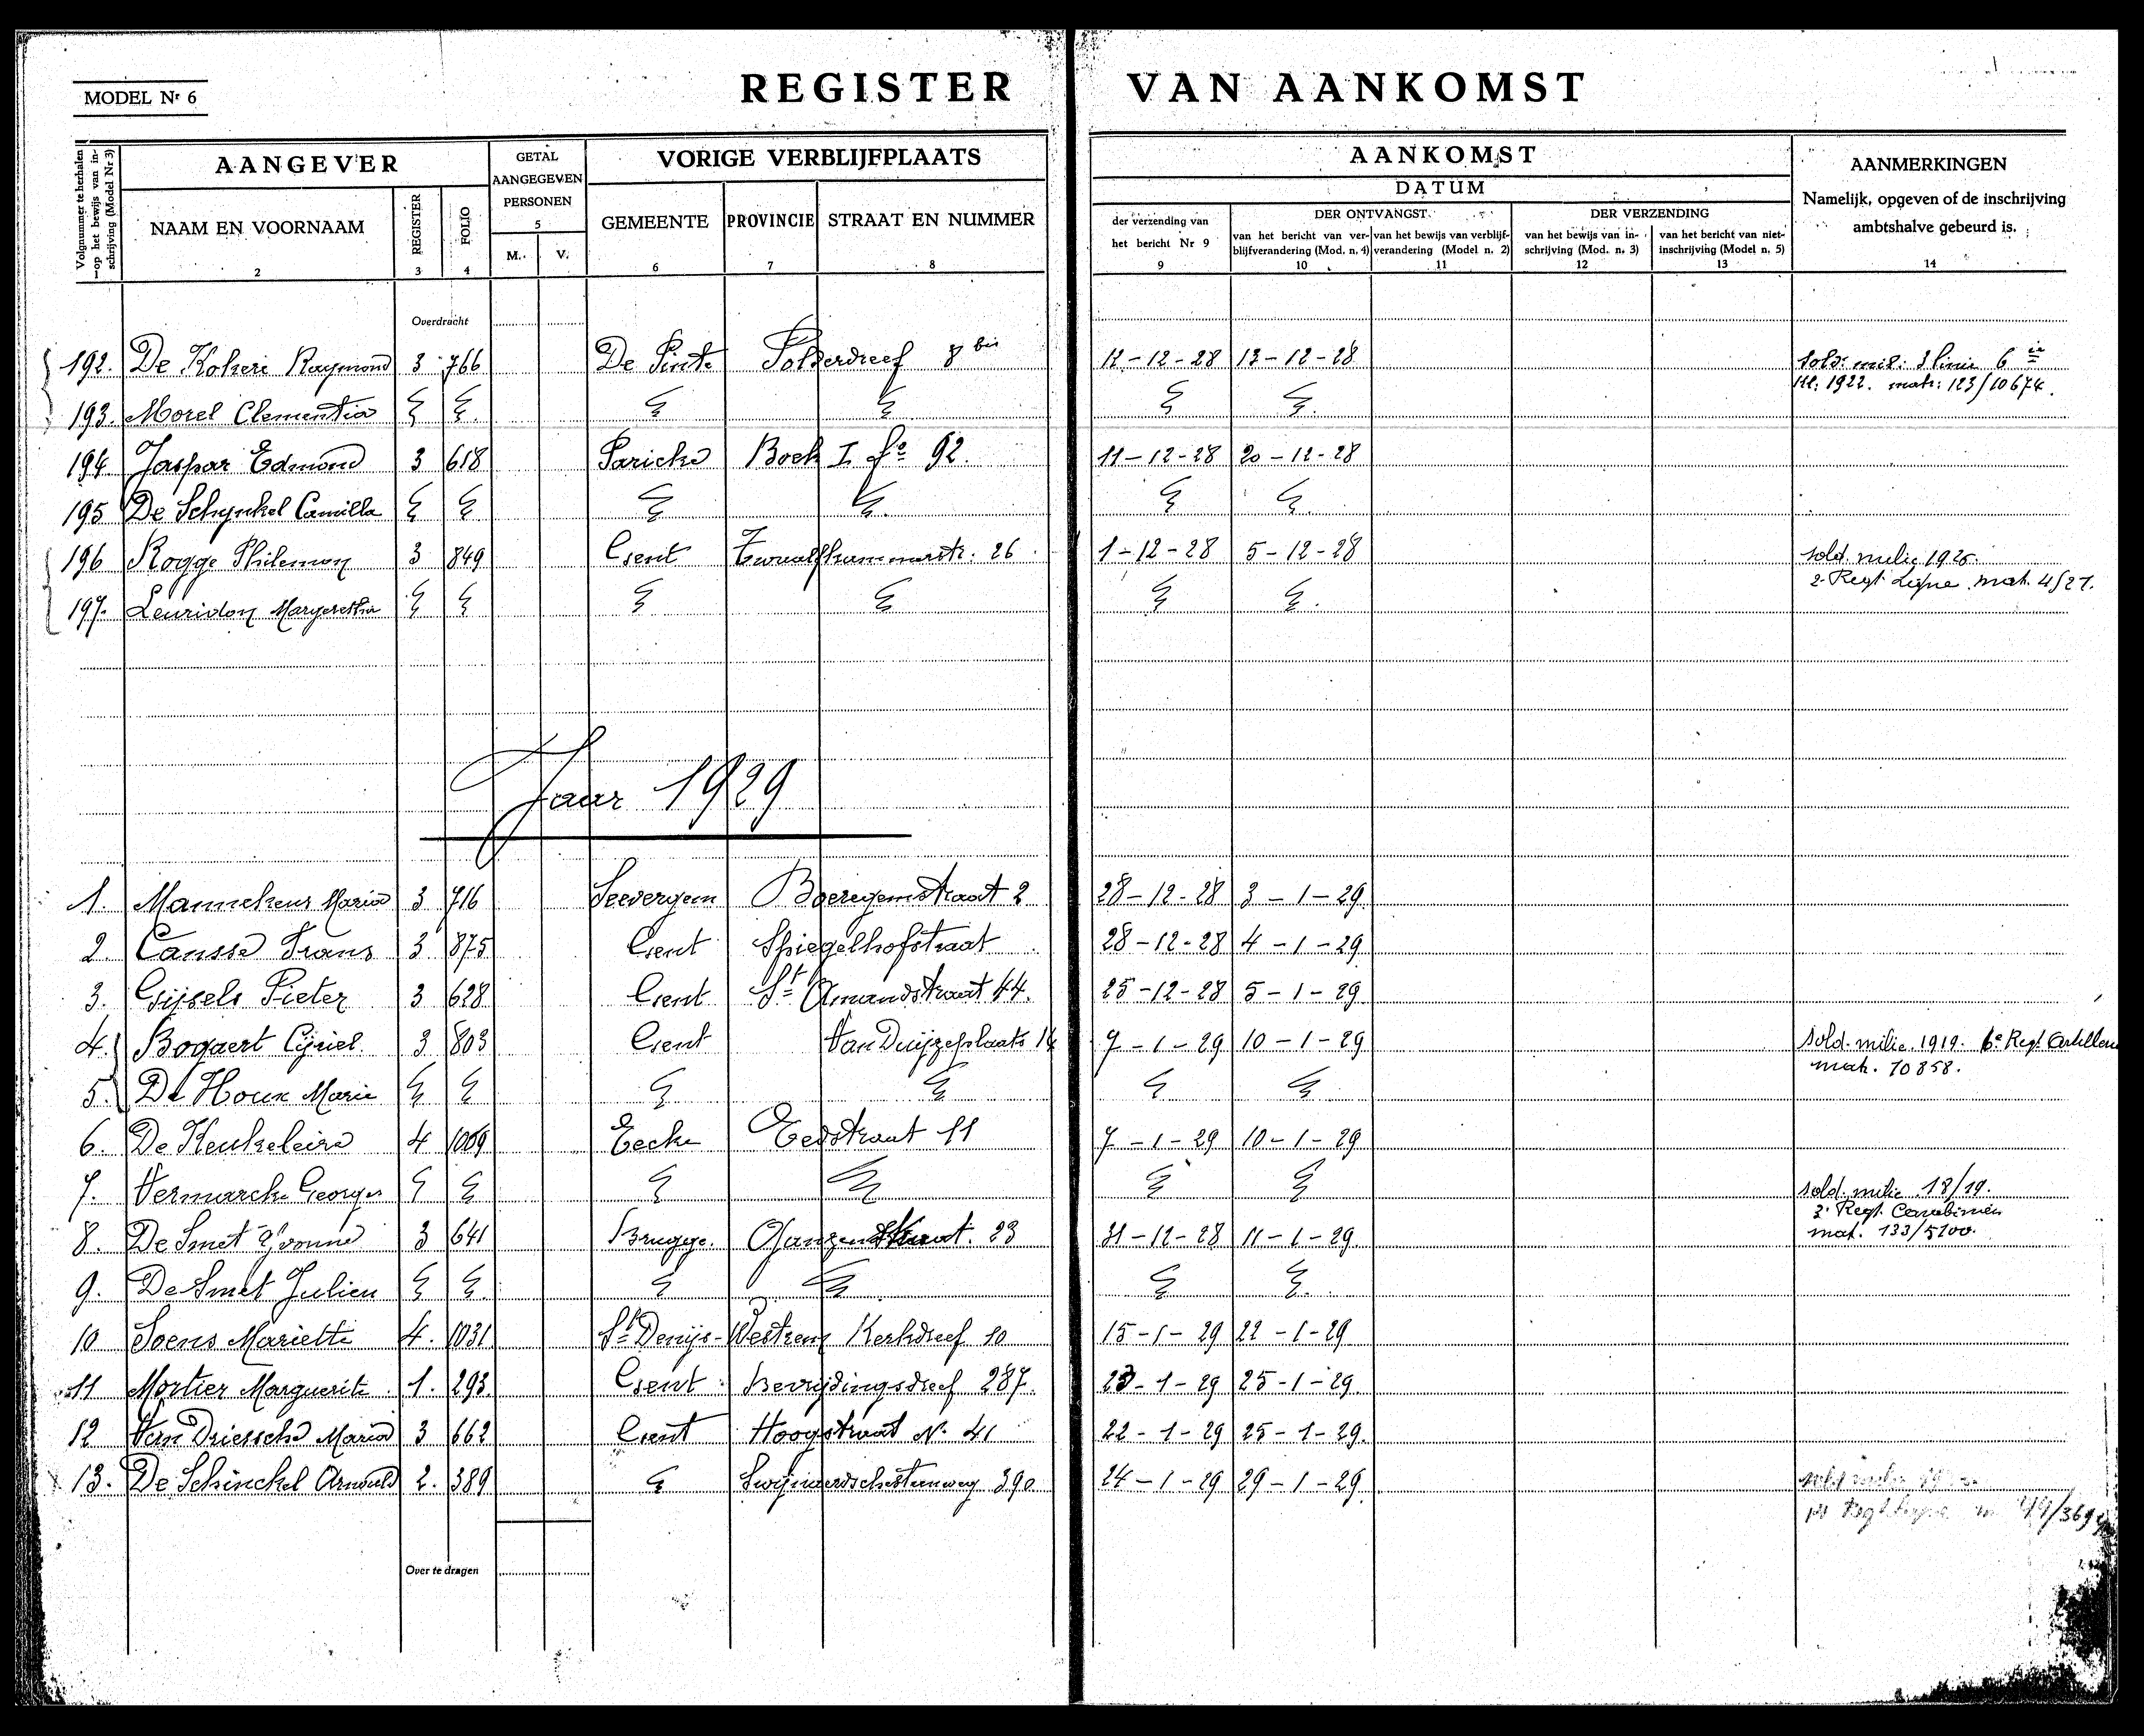 MODEL Nr 6
REGISTER VAN AANKOMST
Volgnummer te herhalen op het bewijs van inschrijving (Model Nr 3)
AANGEVER
GETAL AANGEGEVEN PERSONEN
VORIGE VERBLIJFPLAATS
AANKOMST
AANMERKINGEN
DATUM
Namelijk, opgeven of de inschrijving
ambtshalve gebeurd is.
NAAM EN VOORNAAM
REGISTER
FOLIO
M.
V.
GEMEENTE PROVINCIE STRAAT EN NUMMER
der verzending van
het bericht Nr 9
DER ONTVANGST
van het bericht van ver-
blijfverandering (Mod. n. 4)
van het bewijs van verblijf-
verandering (Model n. 2)
DER VERZENDING
van het bewijs van in-
schrijving (Mod. n. 3)
van het bericht van niet-
inschrijving (Model n. 5)
2 3 4 5 6 7 8 9 10 11 12 13 14
Overdracht
192. De Kokere Raymond 3 766 De Pinte Polderdreef 8 bis 12-12-28 13-12-28 Sold. mil: 3 linie 6
Kl: 1922. matr: 123/10674.
193. Morel Clementia
194 Jaspar Edmond 3 618 Paricke Boek I fo 92. 11-12-28 20-12-28
195 De Schynkel Camilla
196 Rogge Philemon 3 849 Gent Twaalfkamerstr. 26 1-12-28 5-12-28 sold. milic 1926.
2 Regt Ligne mat. 4/27.
197. Leuridon Margeretha
Jaar 1929
1. Mannekens Maria 3 716 Seevergem Boeregemstraat 2 28-12-28 3-1-29
2. Cansse Frans 3 875 Gent Spiegelhofstraat 28-12-28 4-1-29
3. Gijsels Pieter 3 628 Gent St Amandstraat 44. 25-12-28 5-1-29
4. Bogaert Cyriel. 3 803 Gent Van Duyzeplaats 14 7-1-29 10-1-29 sold. milic. 1919. 6e Regt Artillerie
mat. 10858.
5. De Houx Marie
6. De Keukeleire 4 1009 Eecke Eedstraat 11 7-1-29 10-1-29
7. Vermarcke Georges sold. milic 18/19.
2 Regt. Carabinien
mat. 133/5100.
8. De Smet Yvonne 3 641 Brugge. Ganzenstraat. 23 31-12-28 11-1-29
9. De Smet Julien
10 Soens Mariette 4. 1031 St Denijs-Westrem Kerkdreef 10 15-1-29 22-1-29
11 Mortier Marguerite. 1. 293 Gent Bevrijdingsdreef 287. 23-1-29 25-1-29
12 Van Driessche Maria 3 662 Gent Hoogstraat N. 41 22-1-29 25-1-29.
13. De Schinckel Arnould 2. 389 Swijnaerdschesteenweg 390 24-1-29 29-1-29
Over te dragen